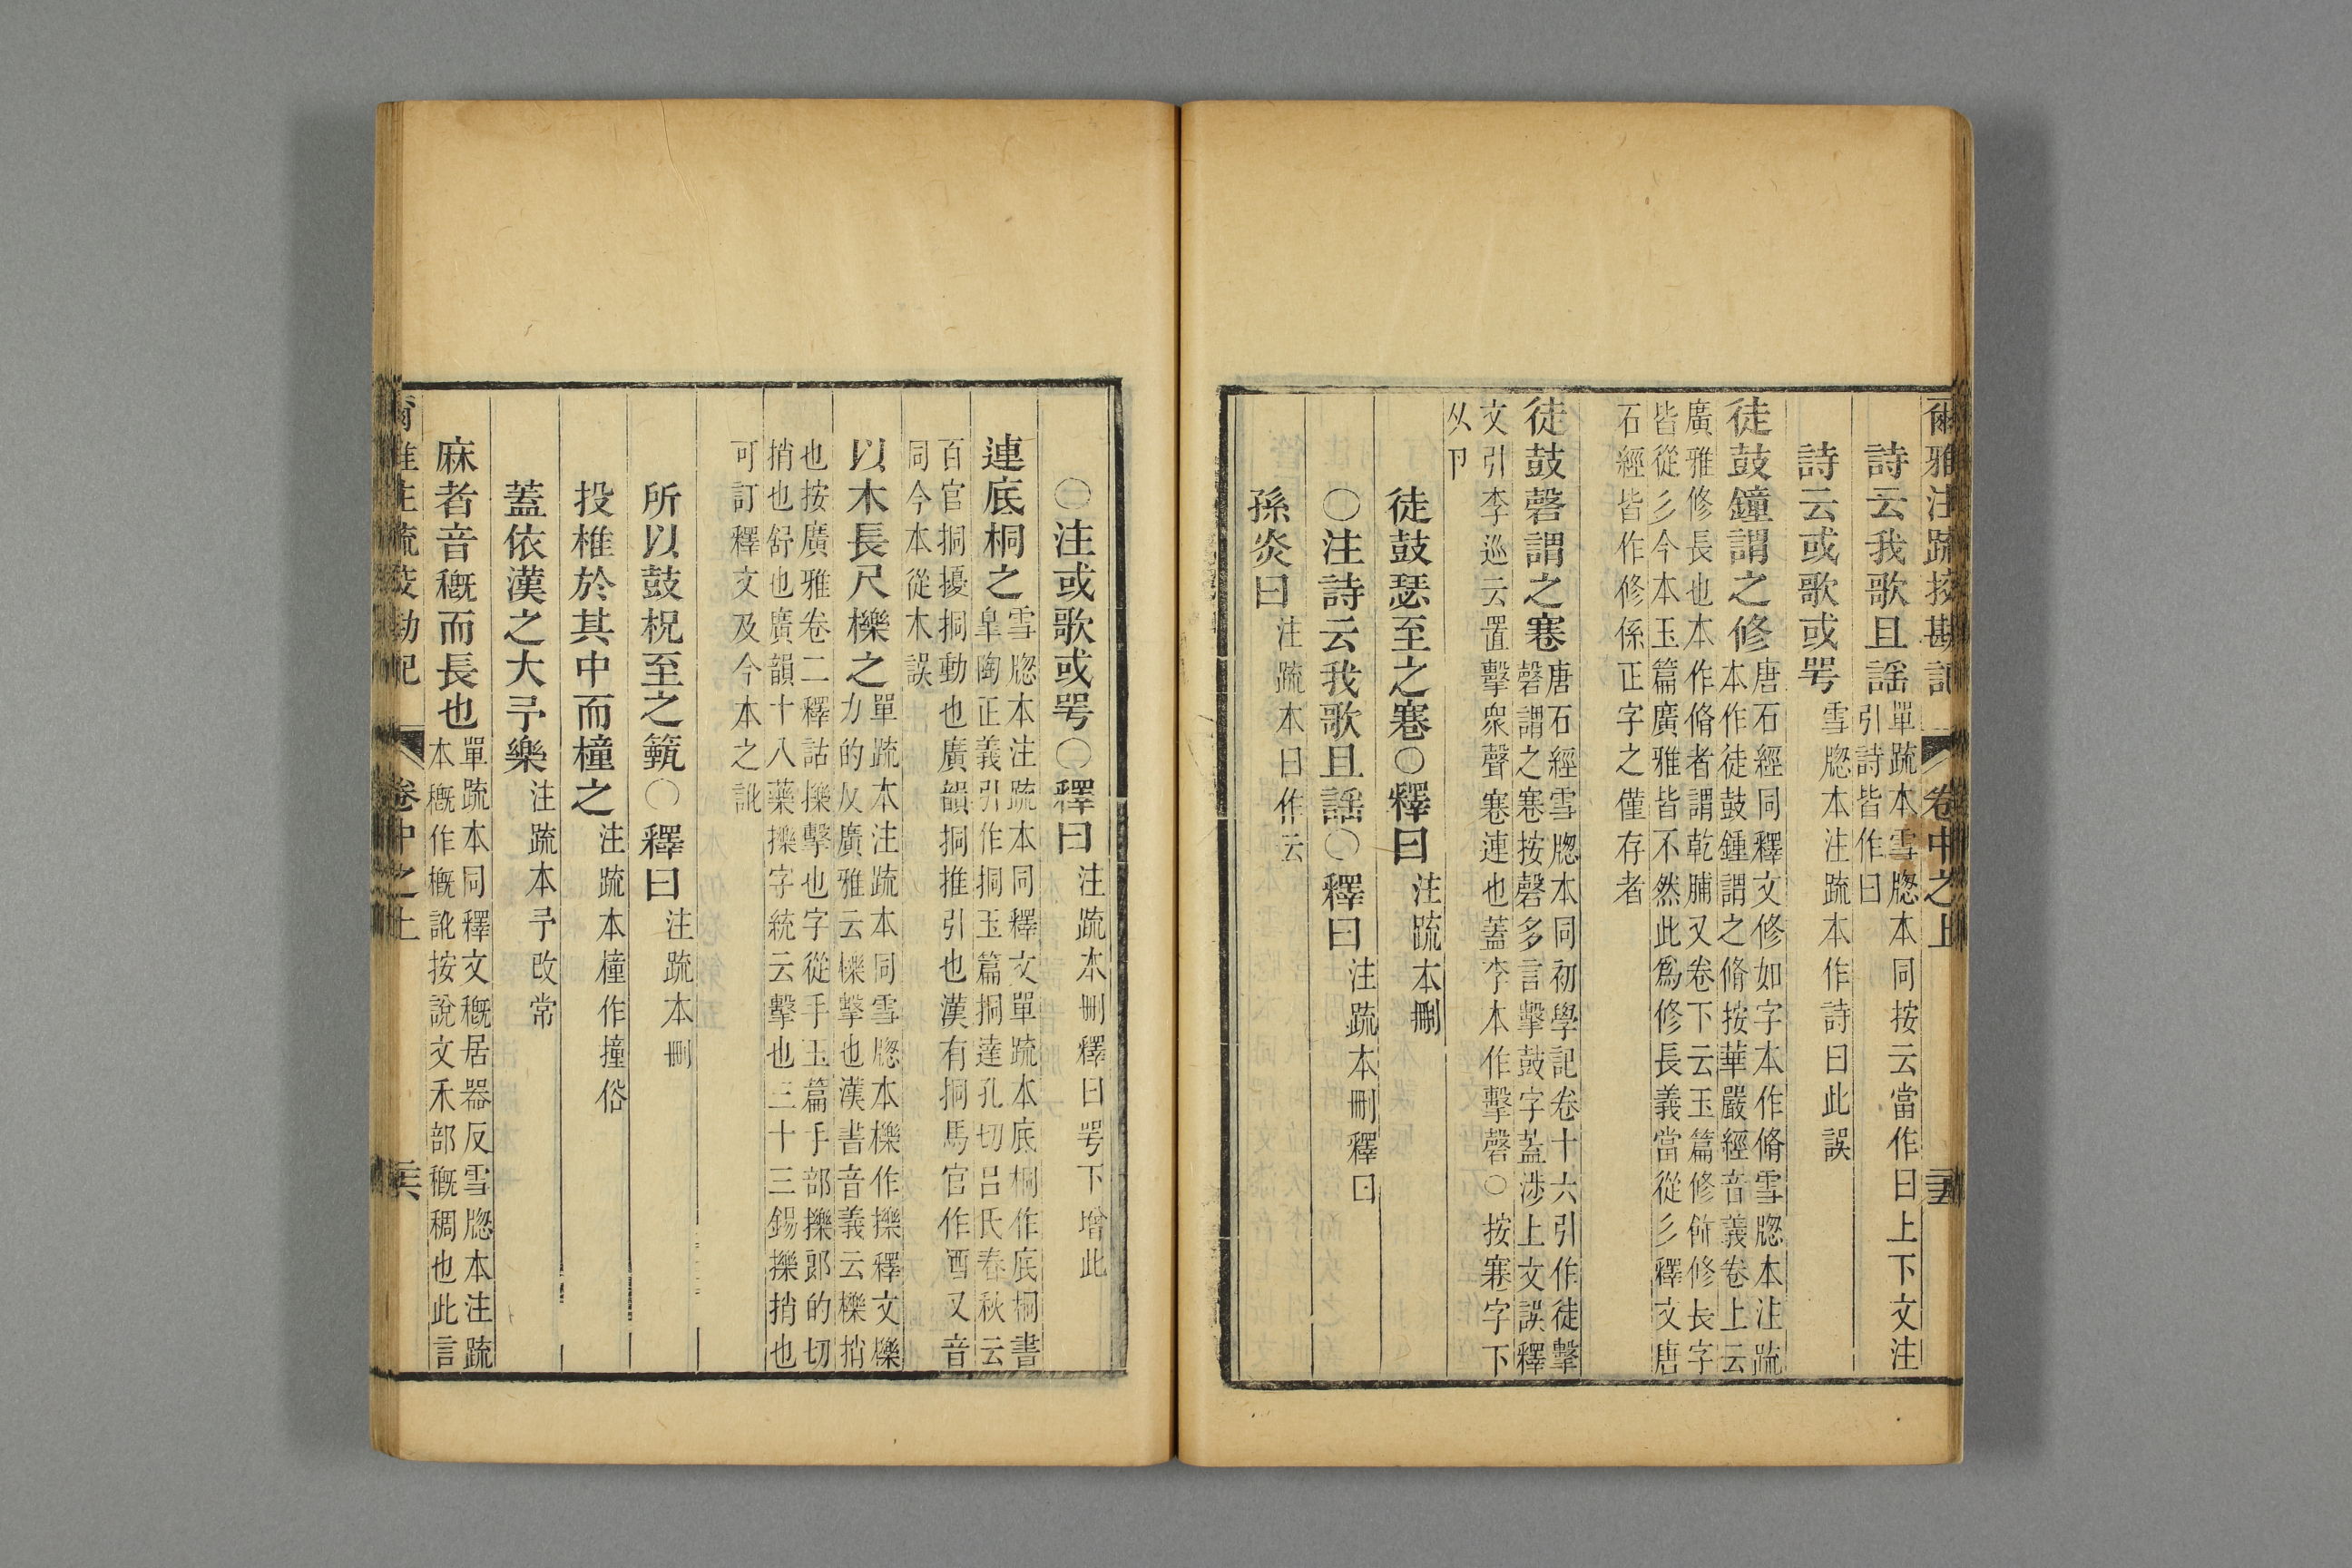 爾雅注疏挍勘記 卷中之上
詩云我歌且謡 單疏本雪牎本同按云當作曰上下文注
引詩皆作曰
詩云或歌或咢 雪牎本注疏本作詩曰此誤
徒鼓鐘謂之修 唐石經同釋文修如字本作脩雪牎本注疏
本作徒鼓鍾謂之脩按華嚴經音義卷上云
廣雅修長也本作脩者謂乾脯又卷下云玉篇修飾修長字
皆從彡今本玉篇廣雅皆不然此爲修長義當從彡釋文唐
石經皆作修係正字之僅存者
徒鼓磬謂之寋 唐石經雪牎本同初學記卷十六引作徒擊
磬謂之寋按磬多言擊鼓字蓋涉上文誤釋
文引李巡云置擊衆聲寋連也蓋李本作擊磬○按寋字下
从卪
徒鼓瑟至之寋○釋曰 注疏本刪
○注詩云我歌且謡○釋曰 注疏本刪釋曰
孫炎曰 注疏本曰作云
○注或歌或咢○釋曰 注疏本刪釋曰咢下增此
連底桐之 雪牎本注疏本同釋文單疏本底桐作底挏書
皐陶正義引作挏玉篇挏達孔切呂氏春秋云
百官挏擾挏動也廣韻挏推引也漢有挏馬官作酒又音
同今本從木誤
以木長尺櫟之 單疏本注疏本同雪牎本櫟作擽釋文櫟
力的反廣雅云櫟擊也漢書音義云櫟捎
也按廣雅卷二釋詁擽擊也字從手玉篇手部擽郎的切
捎也舒也廣韻十八藥擽字統云擊也二十三錫擽捎也
可訂釋文及今本之訛
所以鼓柷至之籈○釋曰 注疏本刪
投椎於其中而橦之 注疏本橦作撞俗
蓋依漢之大予樂 注疏本予改常
麻者音穊而長也 單疏本同釋文穊居器反雪牎本注疏
本穊作概訛按說文禾部穊稠也此言
卷中之上